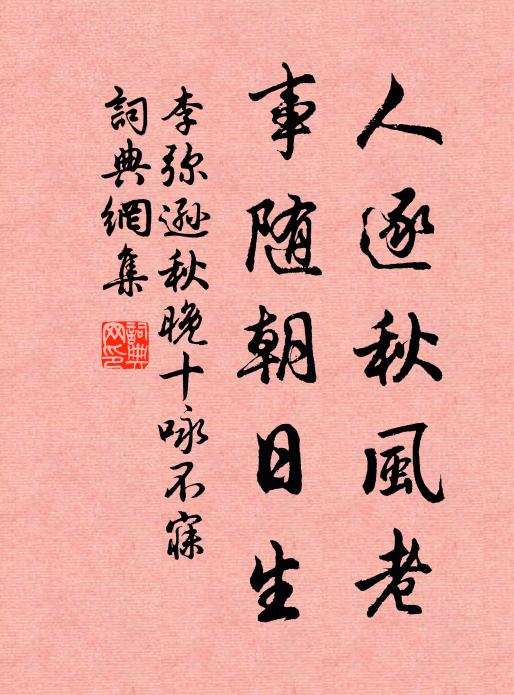 人逐秋風老
事随朝日生
李弥遜秋晚十咏不寐
詞典網集
詞典網印